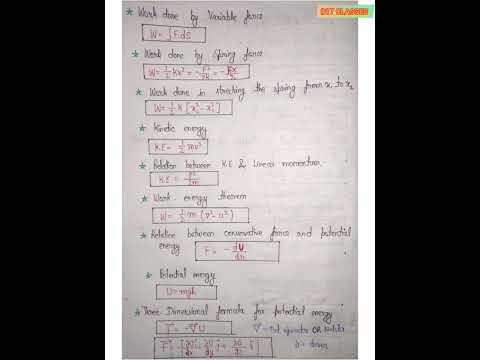 IIT CLASSES
* Work done by Variable force
W = ∫F.ds
* Work done by Spring force
W = ½ kx² = -F²/2k = -Fx/2
* Work done in streching the spring from x₁ to x₂
W = ½ K [x₂² - x₁²]
* Kinetic energy
K.E = ½ mv²
* Relation between K.E & Linear momentum.
K.E = P²/2m
* Work-energy theorem
W = ½ m (v² - u²)
* Relation between conservative force and potential
energy F = -dU/dx
* Potential energy
U = mgh
* Three Dimensional formula for potential energy
F = -∇U ∇ = Del operator OR Nabla